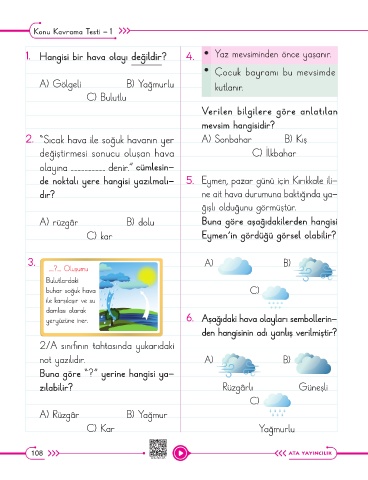 Konu Kavrama Testi - 1
1. Hangisi bir hava olayı değildir?
A) Gölgeli B) Yağmurlu
C) Bulutlu
2. "Sıcak hava ile soğuk havanın yer
değiştirmesi sonucu oluşan hava
olayına .............. denir." cümlesin-
de noktalı yere hangisi yazılmalı-
dır?
A) rüzgâr B) dolu
C) kar
3. ...?... Oluşumu
Bulutlardaki
buhar soğuk hava
ile karşılaşır ve su
damlası olarak
yeryüzüne iner.
2/A sınıfının tahtasında yukarıdaki
not yazılıdır.
Buna göre "?" yerine hangisi ya-
zılabilir?
A) Rüzgâr B) Yağmur
C) Kar
4. • Yaz mevsiminden önce yaşanır.
• Çocuk bayramı bu mevsimde
kutlanır.
Verilen bilgilere göre anlatılan
mevsim hangisidir?
A) Sonbahar B) Kış
C) İlkbahar
5. Eymen, pazar günü için Kırıkkale ili-
ne ait hava durumuna baktığında ya-
ğışlı olduğunu görmüştür.
Buna göre aşağıdakilerden hangisi
Eymen'in gördüğü görsel olabilir?
A) B)
C)
6. Aşağıdaki hava olayları sembollerin-
den hangisinin adı yanlış verilmiştir?
A) B)
Rüzgârlı Güneşli
C)
Yağmurlu
108
ATA YAYINCILIK